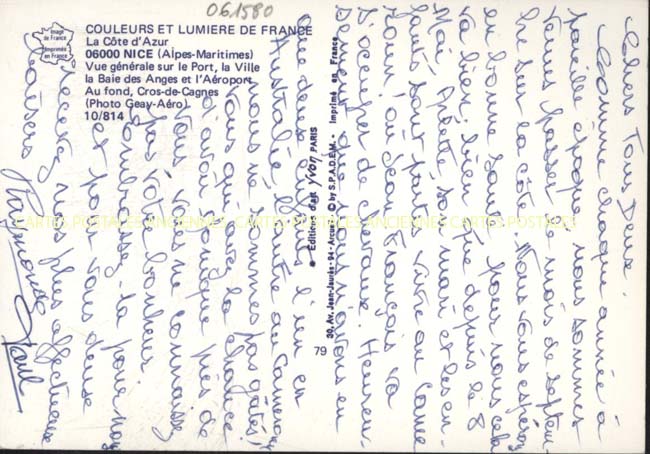 061580
Image de France
Imprimée en France
COULEURS ET LUMIERE DE FRANCE
La Côte d'Azur
06000 NICE (Alpes-Maritimes)
Vue générale sur le Port, la Ville
la Baie des Anges et l'Aéroport
Au fond, Cros-de-Cagnes
(Photo Geay-Aéro)
10/814
Editions d'art Yvon PARIS
30, Av. Jean-Jaurès - 94 - Arcueil © by S.P.A.D.E.M. • Imprimé en France
79
Chers Tous Deux.
Comme chaque année à
pareille époque, nous sommes
venus passer le mois de septem
bre sur la côte. Nous vous espérons
en bonne santé, pour nous cela
va bien, bien que depuis le 8
Mai Arlette son mari et les en-
fants sont partis vivre au Came
roun, où Jean François va
s'occuper de chevaux. Heureu-
sement que nous n'avons
que deux enfants l'un en
Australie l'autre au Cameroun
nous ne sommes pas gâtés,
vous qui avez la chance
d'avoir Monique près de
vous, vous ne connaissez
pas votre bonheur.
Embrassez-la pour nous
et pour vous deux
recevez nos plus affectueux
baisers
Raymonde
Paul
CARTES POSTALES ANCIENNES CARTES POSTALES ANCIENNES CARTES POSTALES ANCIENNES CARTES POSTALES ANCIENNES